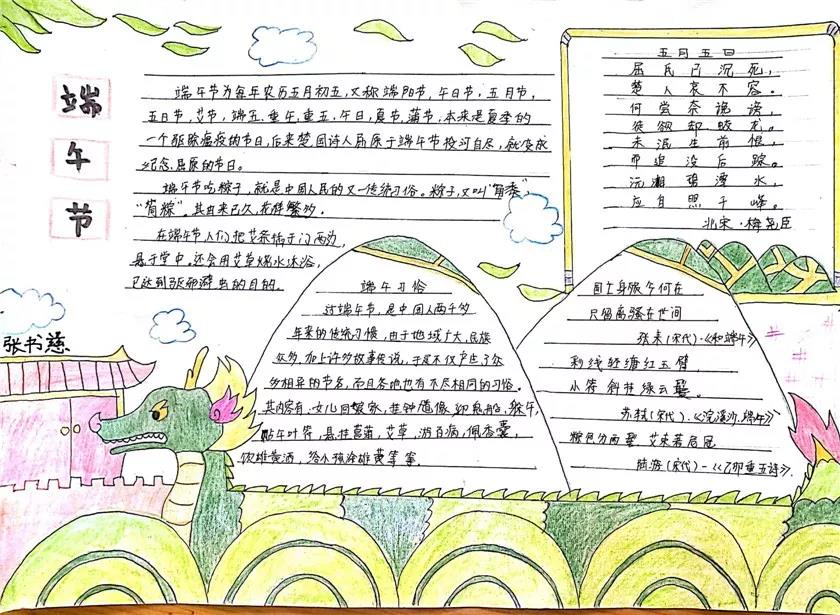 端
午
节
端午节为每年农历五月初五,又称端阳节,午日节,五月节,
五日节,艾节,端五,重午,重五,午日,夏节,蒲节,本来是夏季的
一个驱除瘟疫的节日,后来楚国诗人屈原于端午节投河自尽,就变成
纪念屈原的节日。
端午节吃粽子,就是中国人民的又一传统习俗。粽子,又叫"角黍",
"筒粽"。其由来已久,花样繁多。
在端午节人们把艾条插于门两边,
悬于堂中,还会用艾草煽水沐浴,
已达到驱邪避虫的目的。
五月五日
屈氏已沉死,
楚人哀不容。
何尝奈谗谤,
徒欲却蛟龙。
未泯生前恨,
而追没后踪。
沅湘碧潭水,
应自照千峰。
北宋·梅尧臣
张书慈
端午习俗
过端午节,是中国人两千多
年来的传统习惯,由于地域广大,民族
众多,加上许多故事传说,于是不仅产生了众
多相异的节名,而且各地也有不尽相同的习俗。
其内容有:女儿回娘家,挂钟馗像,迎鬼船,躲午,
贴午叶符,悬挂菖蒲,艾草,游百病,佩香囊,
饮雄黄酒,给小孩涂雄黄等等
国士身殁今何在
只留离骚在世间
张耒(宋代)·《和端午》
彩线轻缠红玉臂
小符斜挂绿云鬟。
苏轼(宋代)·《浣溪沙·端午》
粽包分两髻 艾束著危冠
陆游(宋代)-《乙卯重五诗》.